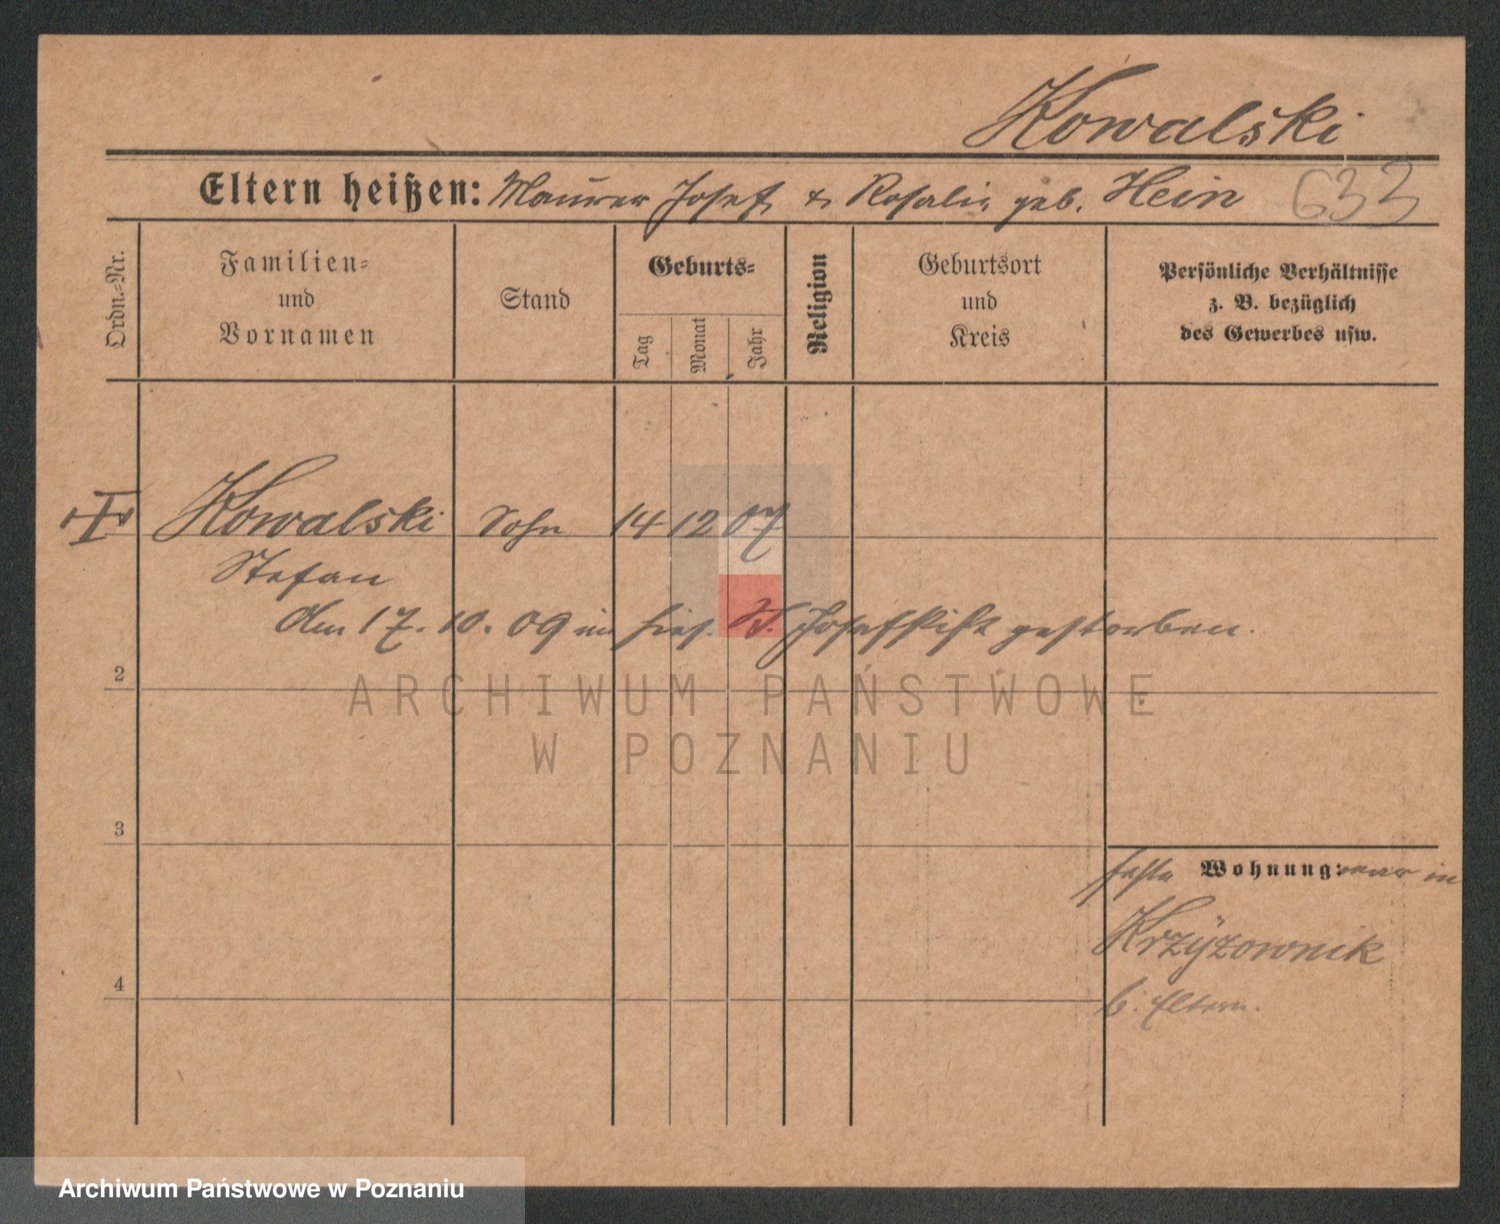 Kowalski
Eltern heißen: Maurer Josef & Rosalie geb. Hein 633
Ordn.-Nr.
Familien-
und
Vornamen
Stand
Geburts-
Tag
Monat
Jahr
Religion
Geburtsort
und
Kreis
Persönliche Verhältnisse
z. B. bezüglich
des Gewerbes usw.
Kowalski Sohn 14 12 07
Stefan
Am 17. 10. 09 im hies. St. Josefstift gestorben.
2
ARCHIWUM PAŃSTWOWE
W POZNANIU
3
Wohnung: war in
Krzyzownik
b. Eltern.
4
Archiwum Państwowe w Poznaniu